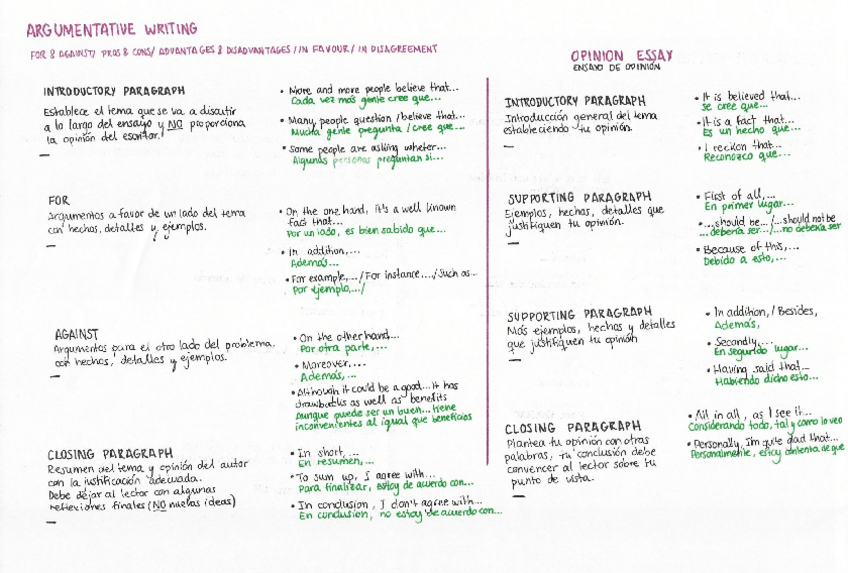 ARGUMENTATIVE WRITING
FOR & AGAINST/ PROS & CONS/ ADVANTAGES & DISADVANTAGES / IN FAVOUR / IN DISAGREEMENT
INTRODUCTORY PARAGRAPH
Establece el tema que se va a discutir
a lo largo del ensayo y NO proporciona
la opinión del escritor.
• More and more people believe that...
Cada vez más gente cree que...
• Many people question /believe that...
Mucha gente pregunta / cree que...
• Some people are asking wheter...
Algunas personas preguntan si...
FOR
Argumentos a favor de un lado del tema
con hechos, detalles y ejemplos.
• On the one hand, it's a well known
fact that...
Por un lado, es bien sabido que...
• In addition,...
Además...
• For example,.../ For instance..../ Such as...
Por ejemplo,.../
AGAINST
Argumentos para el otro lado del problema.
con hechos, detalles y ejemplos.
• On the other hand...
Por otra parte,...
• Moreover,...
Además,...
• Although it could be a good... it has
drawbacks as well as benefits
Aunque puede ser un buen... tiene
inconvenientes al igual que beneficios
CLOSING PARAGRAPH
Resumen del tema y opinión del autor
con la justificación adecuada.
Debe dejar al lector con algunas
reflexiones finales (NO nuevas ideas)
• In short, ...
En resumen, ...
• To sum up, I agree with...
Para finalizar, estoy de acuerdo con...
• In conclusion, I don't agree with...
En conclusión, no estoy de acuerdo con...
OPINION ESSAY
ENSAYO DE OPINIÓN
INTRODUCTORY PARAGRAPH
Introducción general del tema
estableciendo tu opinión.
• It is believed that...
Se cree que...
• It is a fact that...
Es un hecho que...
• I reckon that...
Reconozco que...
SUPPORTING PARAGRAPH
Ejemplos, hechos, detalles que
justifiquen tu opinión.
• First of all,...
En primer lugar...
• ...should be.../...should not be
...debería ser.../...no debería ser
• Because of this,...
Debido a esto,...
SUPPORTING PARAGRAPH
Más ejemplos, hechos y detalles
que justifiquen tu opinión
• In addition, / Besides,
Además,
• Secondly,...
En segundo lugar...
• Having said that...
Habiendo dicho esto...
CLOSING PARAGRAPH
Plantea tu opinión con otras
palabras, tu conclusión debe
convencer al lector sobre tu
punto de vista.
• All in all, as I see it...
Considerando todo, tal y como lo veo
• Personally, I'm quite glad that...
Personalmente, estoy contenta de que